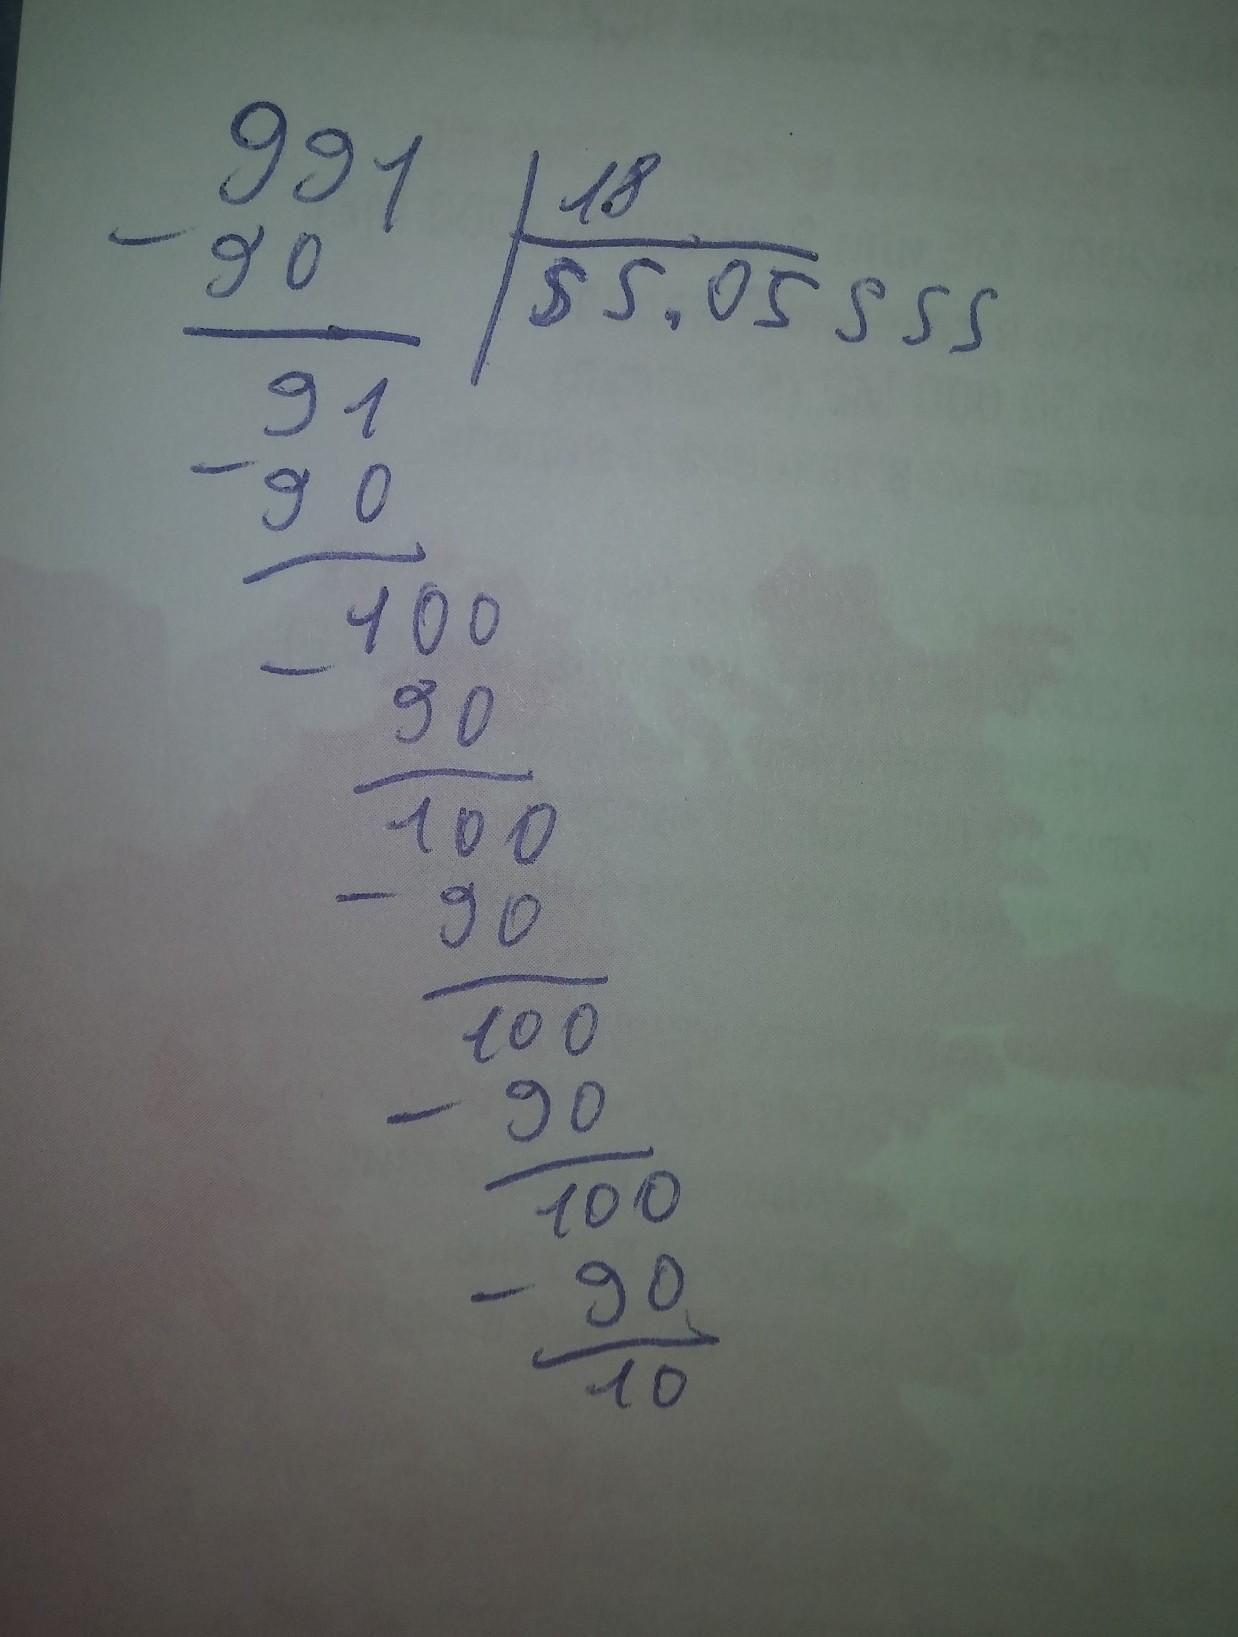 991 18
- 90 55.05555
91
- 90
100
-
90
100
- 90
100
- 90
100
- 90
10